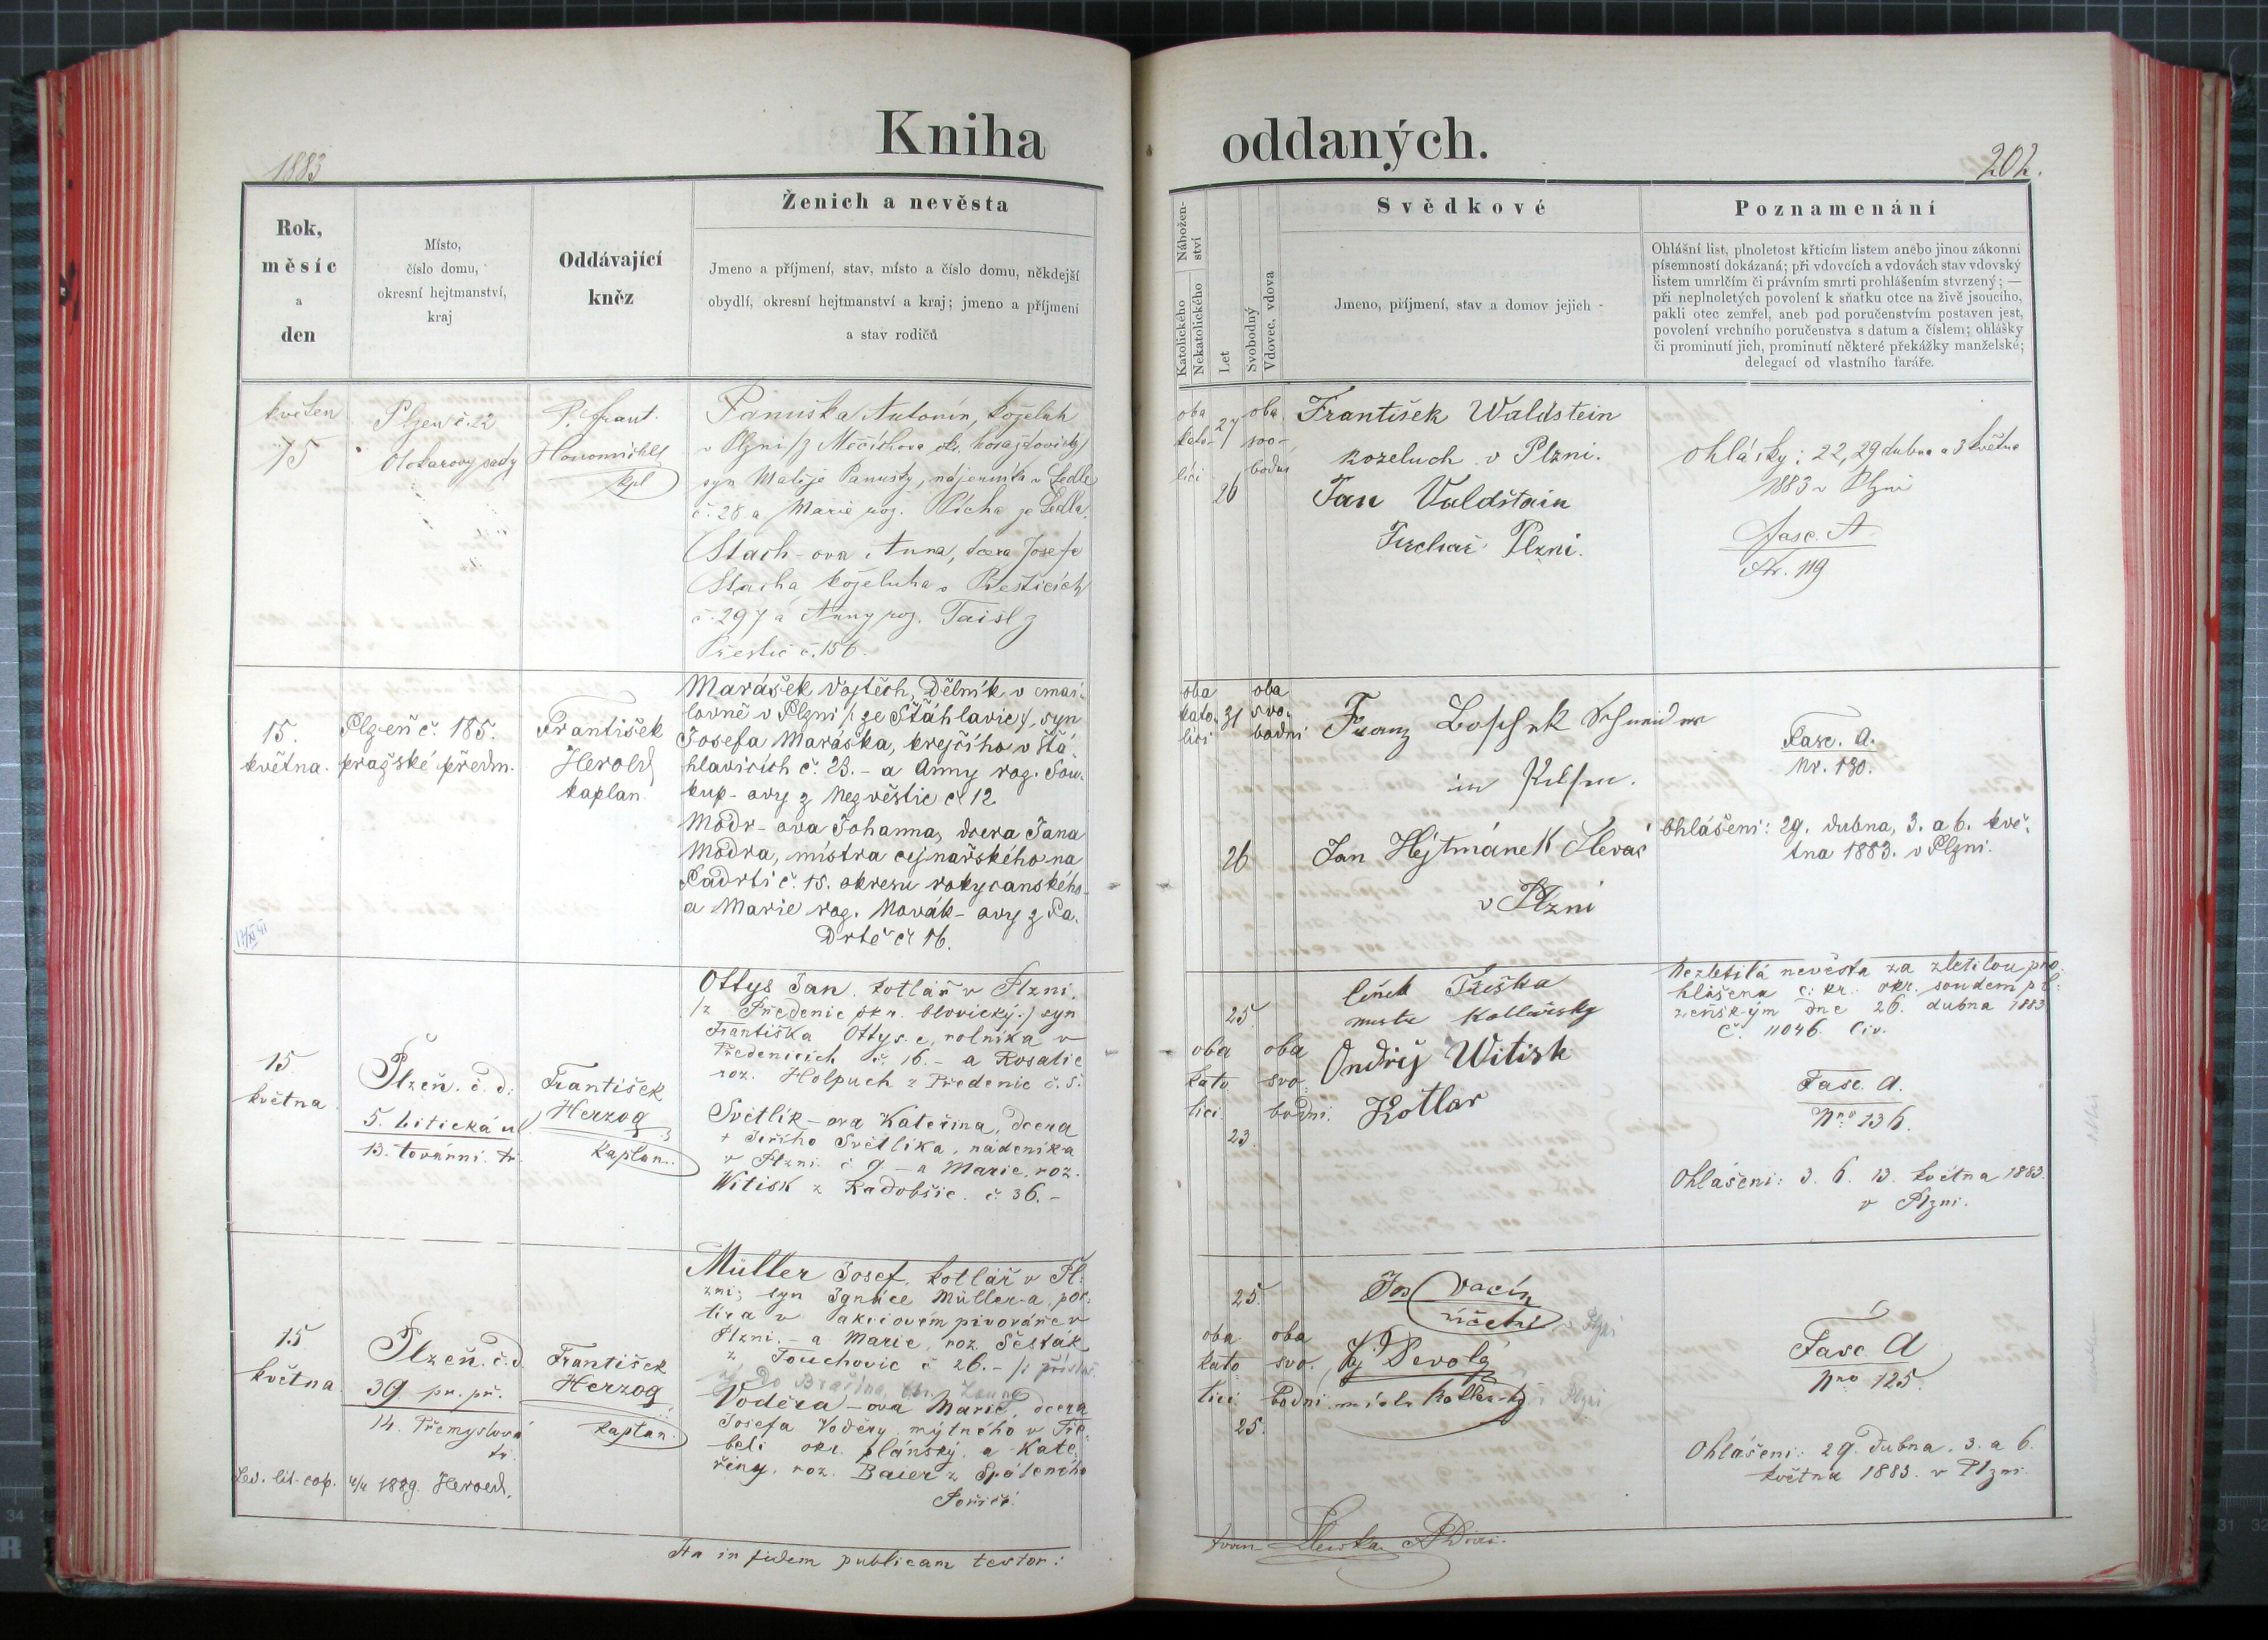 Kniha oddaných.
1883
202.
Rok,
měsíc
a
den
Místo,
číslo domu,
okresní hejtmanství,
kraj
Oddávající
kněz
Ženich a nevěsta
Jmeno a příjmení, stav, místo a číslo domu, někdejší
obydlí, okresní hejtmanství a kraj; jmeno a příjmení
a stav rodičů
Nábožen-
ství
Katolického
Nekatolického
Let
Svobodný
Vdovec, vdova
Svědkové
Jmeno, příjmení, stav a domov jejich
Poznamenání
Ohlášní list, plnoletost křticím listem anebo jinou zákonní
písemností dokázaná; při vdovcích a vdovách stav vdovský
listem umrlčím či právním smrti prohlášením stvrzený; —
při neplnoletých povolení k sňatku otce na živě jsoucího,
pakli otec zemřel, aneb pod poručenstvím postaven jest,
povolení vrchního poručenstva s datum a číslem; ohlášky
či prominutí jich, prominutí některé překážky manželské;
delegací od vlastního faráře.
květen
15
Plzeň č. 22
Otokarovy sady
P. Frant.
kpl
Panuška Antonín, koželuh
v Plzni /z Měčichova okr. horažďovický/
syn Matěje Panušky, nájemníka v Sedle
č. 28 a Marie roz. Pícha ze Sedla.
Stach-ova Anna, dcera Josefa
Stacha, koželuha v Přešticích
č. 297 a Anny roz. Taisl z
Přeštic č. 156.
oba
kato-
líci
27
26
oba
svo-
bodní
František Waldstein
kozeluch v Plzni.
Jan Valdštain
Plzni.
ohlášky: 22, 29 dubna a 3 května
1883 v Plzni
Fasc. A
Nr. 119
15.
května.
Plzeň č. 185.
pražské předm.
František
Herold
kaplan
Marášek Vojtěch, dělník v emai-
lovně v Plzni /: ze Štáhlavic :/, syn
Josefa Maráška, krejčího v Štá-
hlavicích č. 23. - a Anny roz. Sou-
kup-ovy z Nezvěstic č. 12
Modr-ova Johanna, dcera Jana
Modra, místra cejnařského na
Padrti č. 15. okresu rokycanského
a Marie roz. Novák-ovy z Pa-
drtě č. 16.
oba
kato-
líci
31
26
oba
svo-
bodní
Franz Boschek Schneider
in Pilsen.
Jan Hejtmánek Slevač
v Plzni
Fasc. A.
Nr. 130.
Ohlášení: 29. dubna, 3. a 6. kvě-
tna 1883. v Plzni.
15
května
Plzeň. č. d.
5. Litická u.
13. tovární. tř.
František
Herzog
kaplan.
Ottys Jan. kotlář v Plzni.
/z Předenic okr. blovický./ syn
Františka Ottys-e, rolníka v
Předenicích č. 16. - a Rosalie
roz. Holpuch z Předenic č. 5.
Světlík-ova Kateřina, dcera
+ Jiřího Světlíka, nádeníka
v Plzni č. 9. - a Marie, roz.
Witisk z Radobšic. č. 36. -
25.
oba
kato
líci
23.
oba
svo-
bodní.
Ondřej Witisk
Kotlar
Nezletilá nevěsta za zletilou pro-
hlášena c. kr. okr. soudem pl-
zeňským dne 26. dubna 1883
č. 11046. civ.
Fasc. A.
Nro 136.
Ohlášeni: 3. 6. 13. května 1883.
v Plzni.
15
května
Plzeň. č. d.
39 pr. př.
14. Přemyslova
tř.
František
Herzog
kaplan.
Müller Josef, kotlář v Pl-
zni; syn Ignáce Müller-a, por-
týra v akciovém pivováře v
Plzni. - a Marie, roz. Šesták
z Touchovic č. 26. -
Voděra-ova Marie, dcera
Josefa Voděry, mýtného v Tře-
beli okr. plánský, a Kate-
řiny, roz. Baier z Spáleního
Poříčí.
25.
oba
kato
líci
25.
oba
svo.
bodní
Jos Vacín
účetní v Plzni
Fasc A
Nro 125.
Ohlášeni: 29. dubna. 3. a 6.
května 1883. v Plzni.
Lev. lit. cop. 4/4 1889. Herold.
Ita in fidem publicam testor: